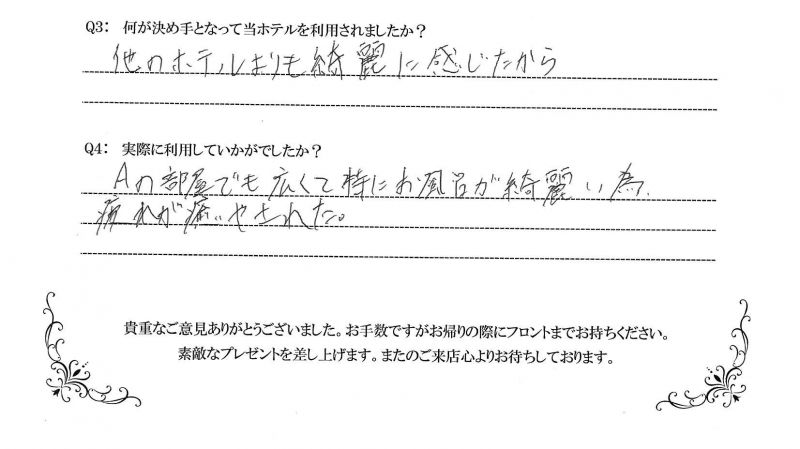 Q3： 何が決め手となって当ホテルを利用されましたか？
他のホテルよりも綺麗に感じたから
Q4： 実際に利用していかがでしたか？
Aの部屋でも広くて特にお風呂が綺麗い為、
疲れが癒やされた。
貴重なご意見ありがとうございました。お手数ですがお帰りの際にフロントまでお持ちください。
素敵なプレゼントを差し上げます。またのご来店心よりお待ちしております。